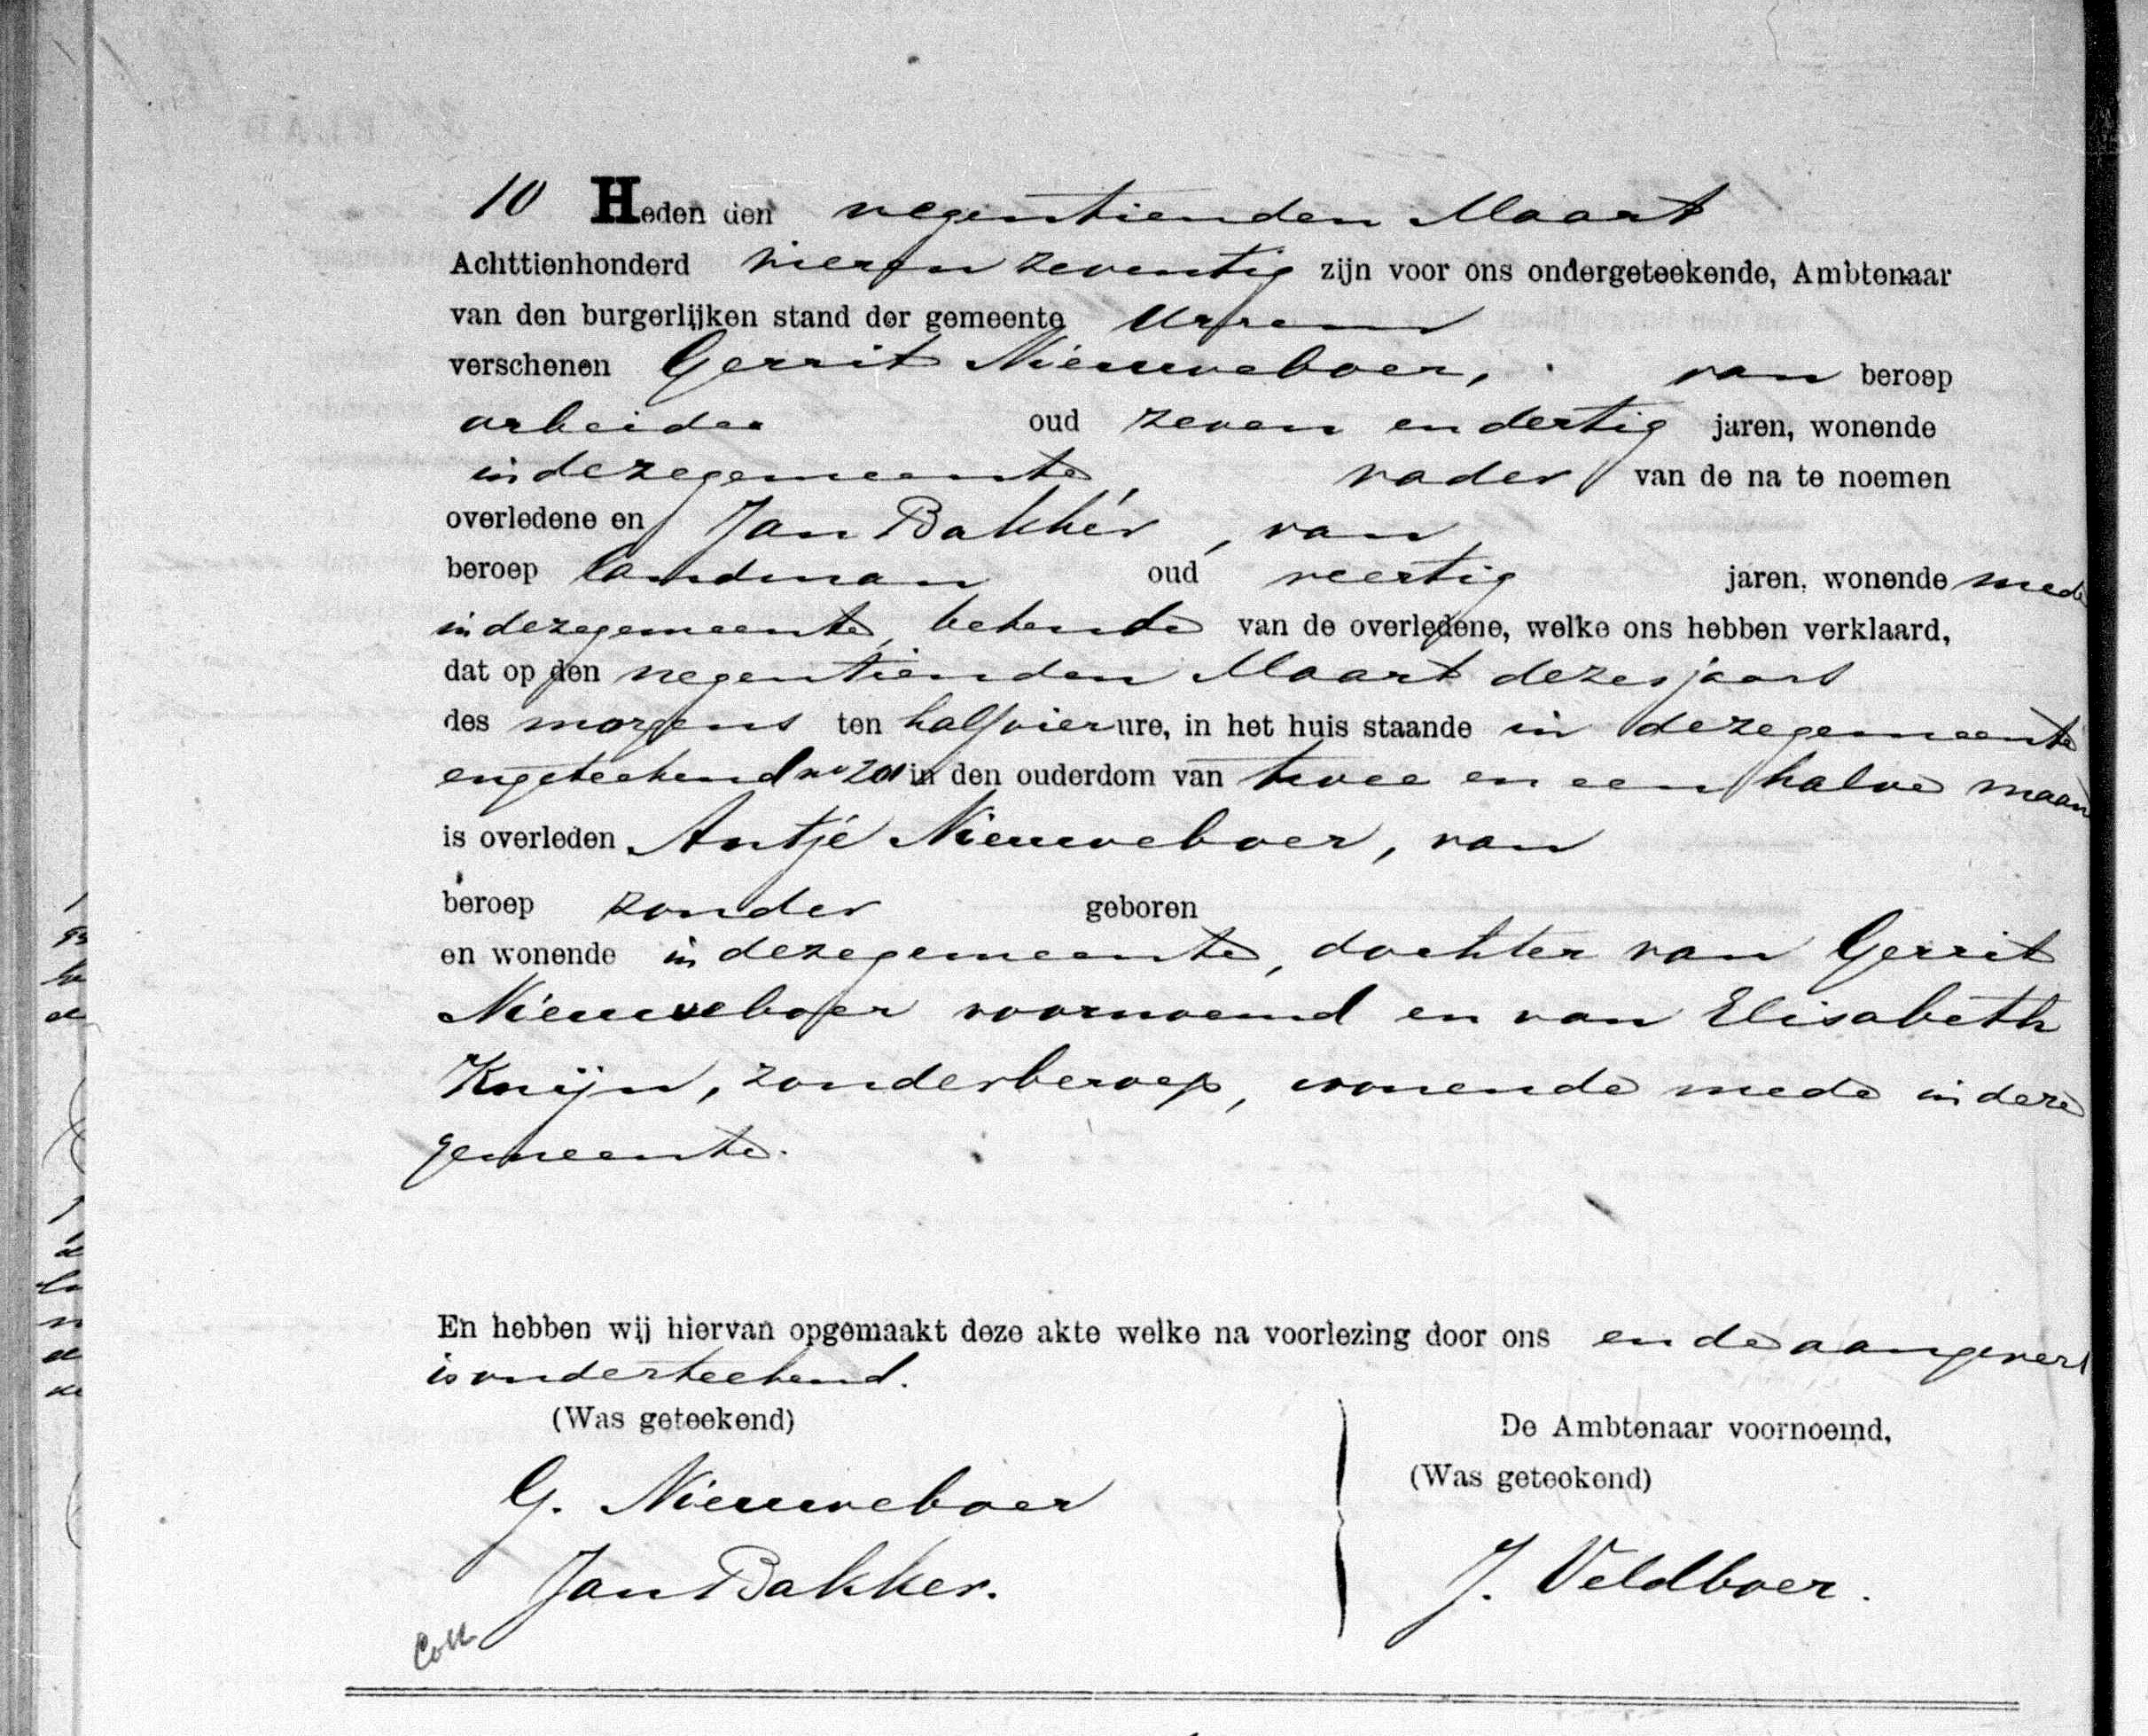 10 Heden den negentienden Maart
Achttienhonderd vierenzeventig zijn voor ons ondergeteekende, Ambtenaar
van den burgerlijken stand der gemeente Ursem
verschenen Gerrit Nieuweboer, van beroep
arbeider oud zeven en dertig jaren, wonende
in deze gemeente, vader van de na te noemen
overledene en Jan Bakker, van
beroep landman oud veertig jaren, wonende mede
in deze gemeente, bekende van de overledene, welke ons hebben verklaard,
dat op den negentienden Maart dezes jaars
des morgens ten half vier ure, in het huis staande in deze gemeente
en geteekend no in den ouderdom van twee en een halve maan
is overleden Antje Nieuweboer, van
beroep zonder geboren
en wonende in deze gemeente, dochter van Gerrit
Nieuweboer voornoemd en van Elisabeth
Knijn, zonder beroep, wonende mede in deze
gemeente.
En hebben wij hiervan opgemaakt deze akte welke na voorlezing door ons en de aangevers
is onderteekend.
(Was geteekend)
De Ambtenaar voornoemd,
(Was geteekend)
G. Nieuweboer
Jan Bakker.
J. Veldboer.
Coll.